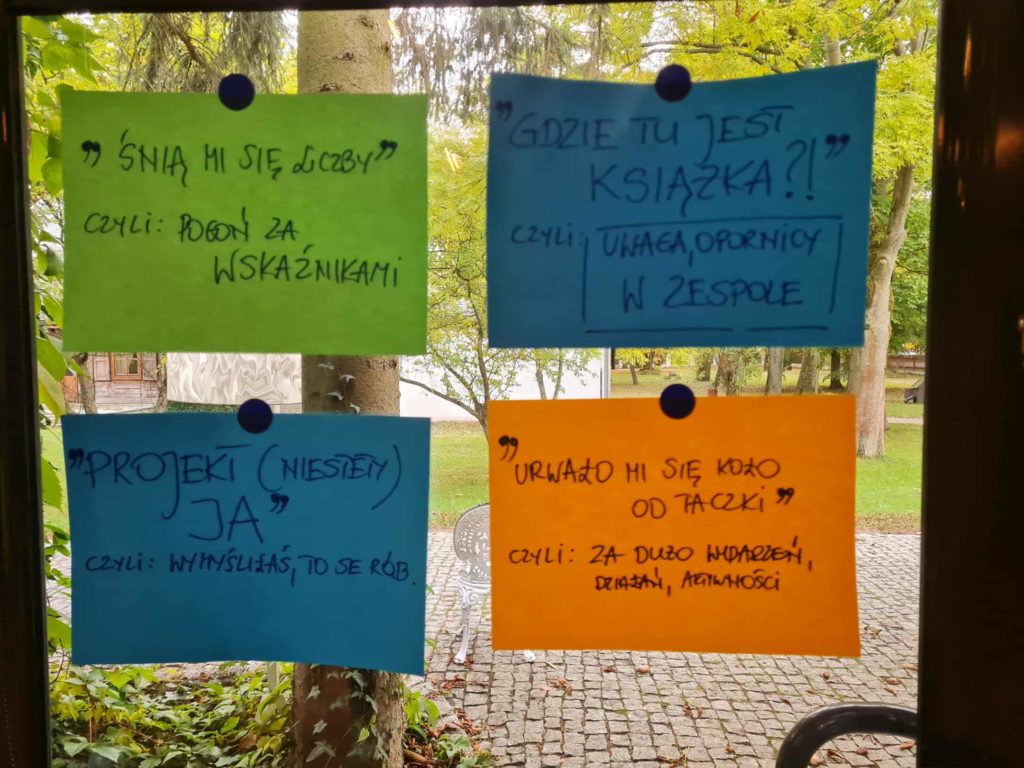 "ŚNIĄ MI SIĘ LICZBY"
CZYLI: POGOŃ ZA
WSKAŹNIKAMI
"GDZIE TU JEST
KSIĄŻKA?!"
CZYLI: UWAGA, OPORNICY
W ZESPOLE
"PROJEKT (NIESTETY)
JA"
CZYLI: WYMYŚLIŁAŚ, TO SE RÓB.
"URWAŁO MI SIĘ KOŁO
OD TACZKI"
CZYLI: ZA DUŻO WYDARZEŃ,
DZIAŁAŃ, AKTYWNOŚCI